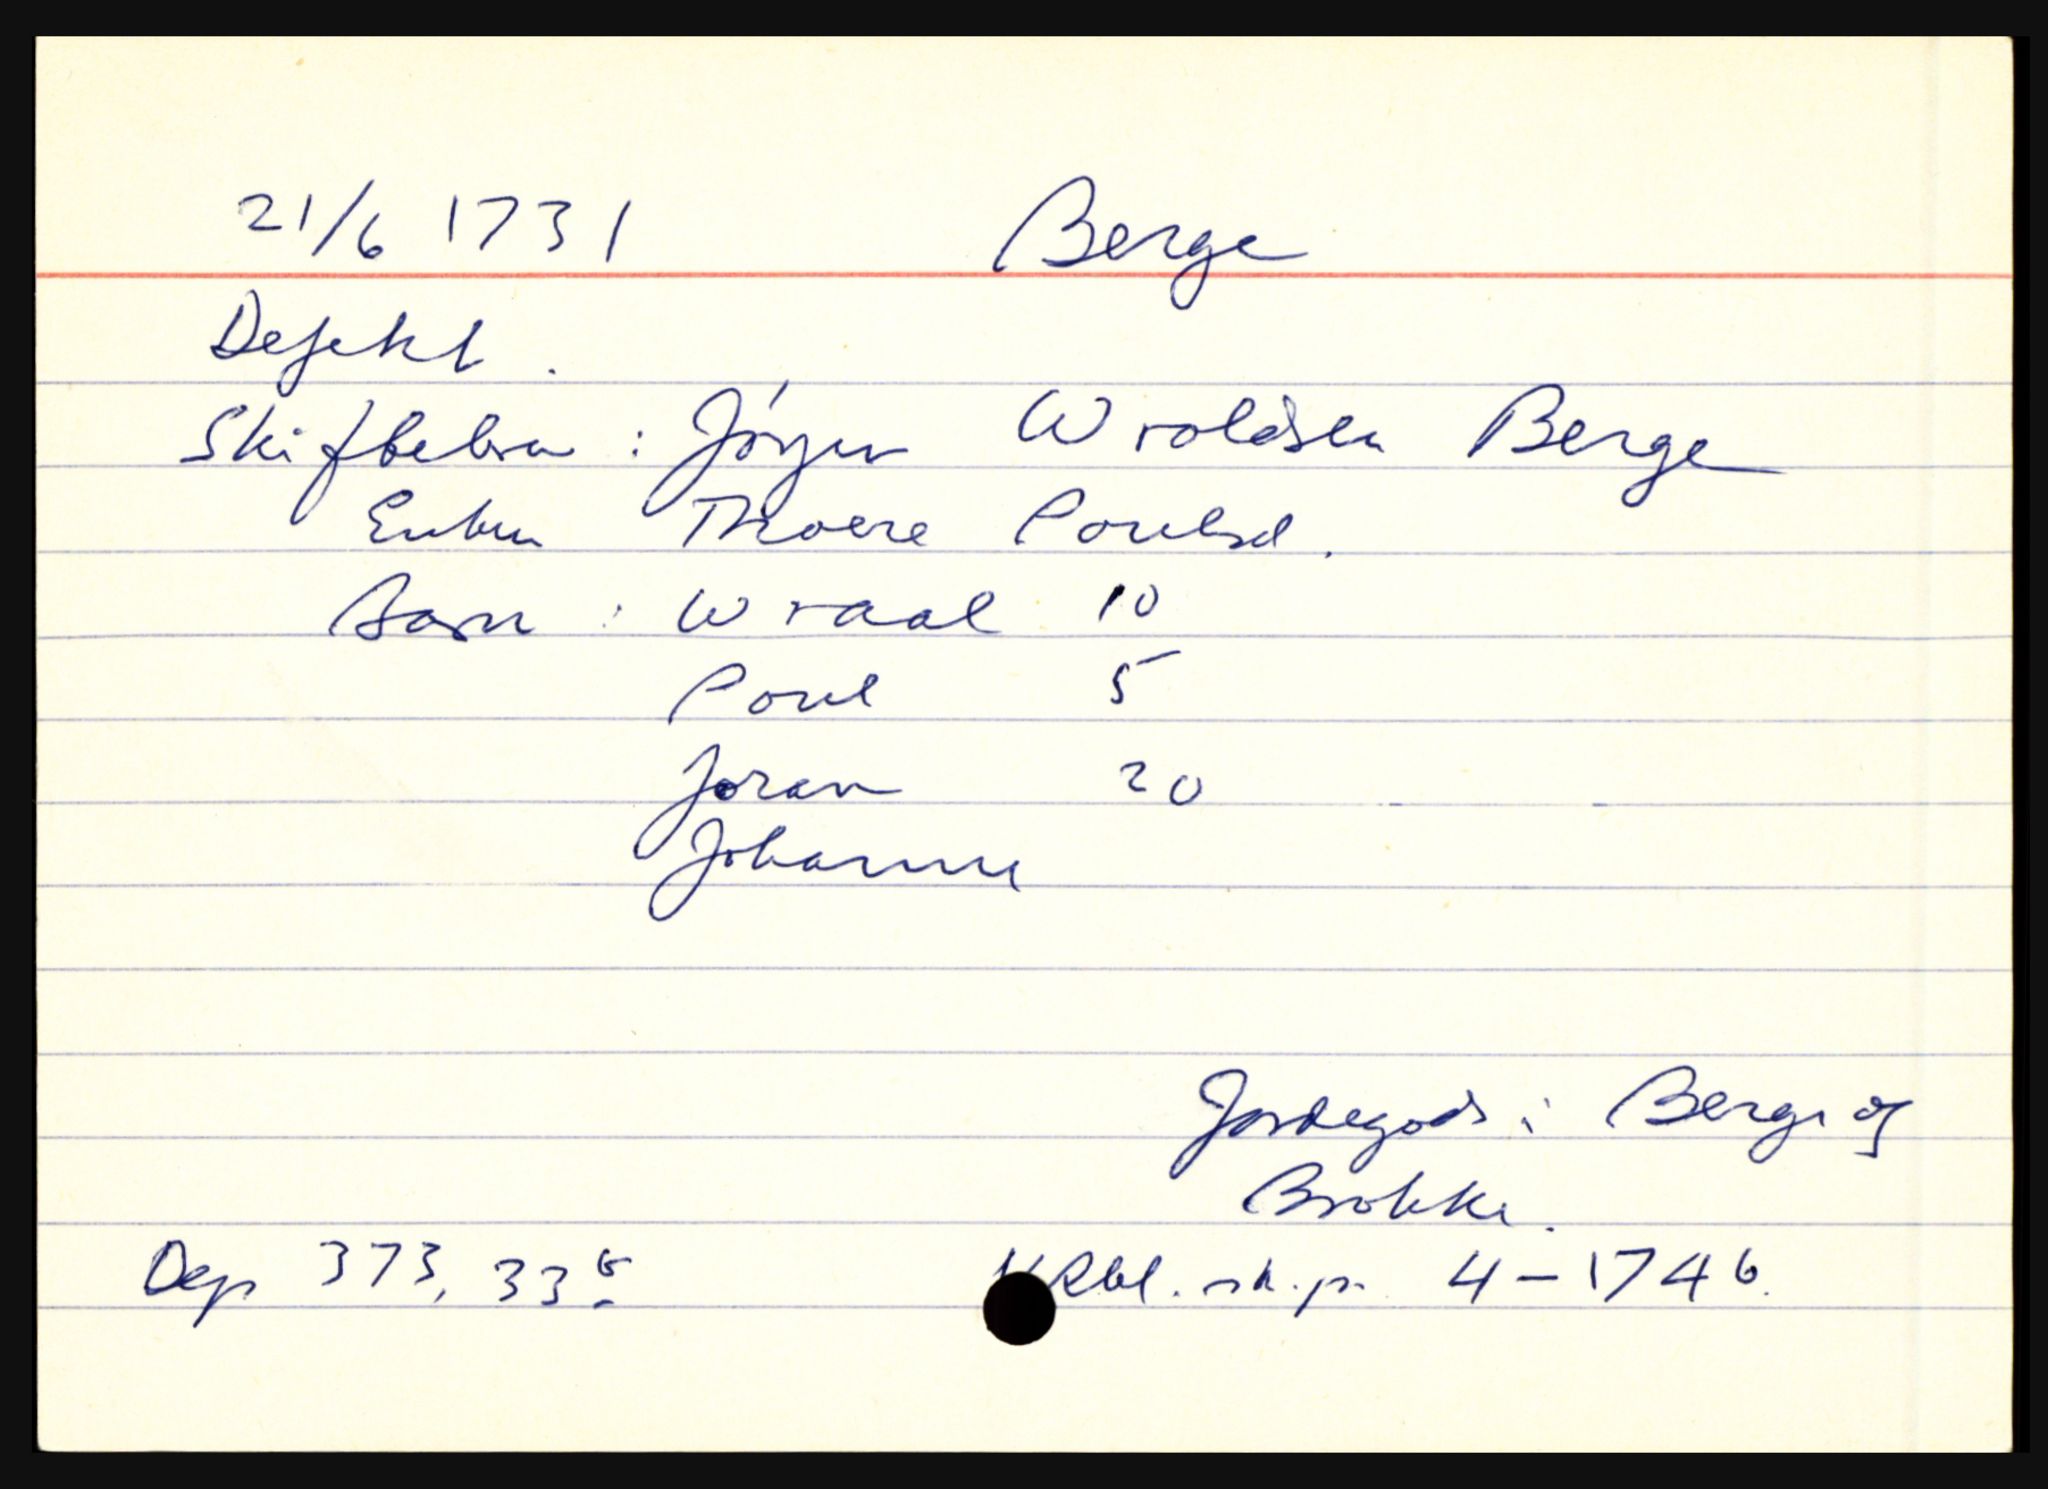 21/6 1731 Berge
Defekt.
Skiftebrev: Jörgen Wroldsen Berge
Enken Thoere Poulsd.
Barn: Wraal 10
Poul 5
Joran 20
Johanne
Jordegods i Berge og
Brokke.
Dep 373, 33 Rbl. sk.pr. 4-1746.